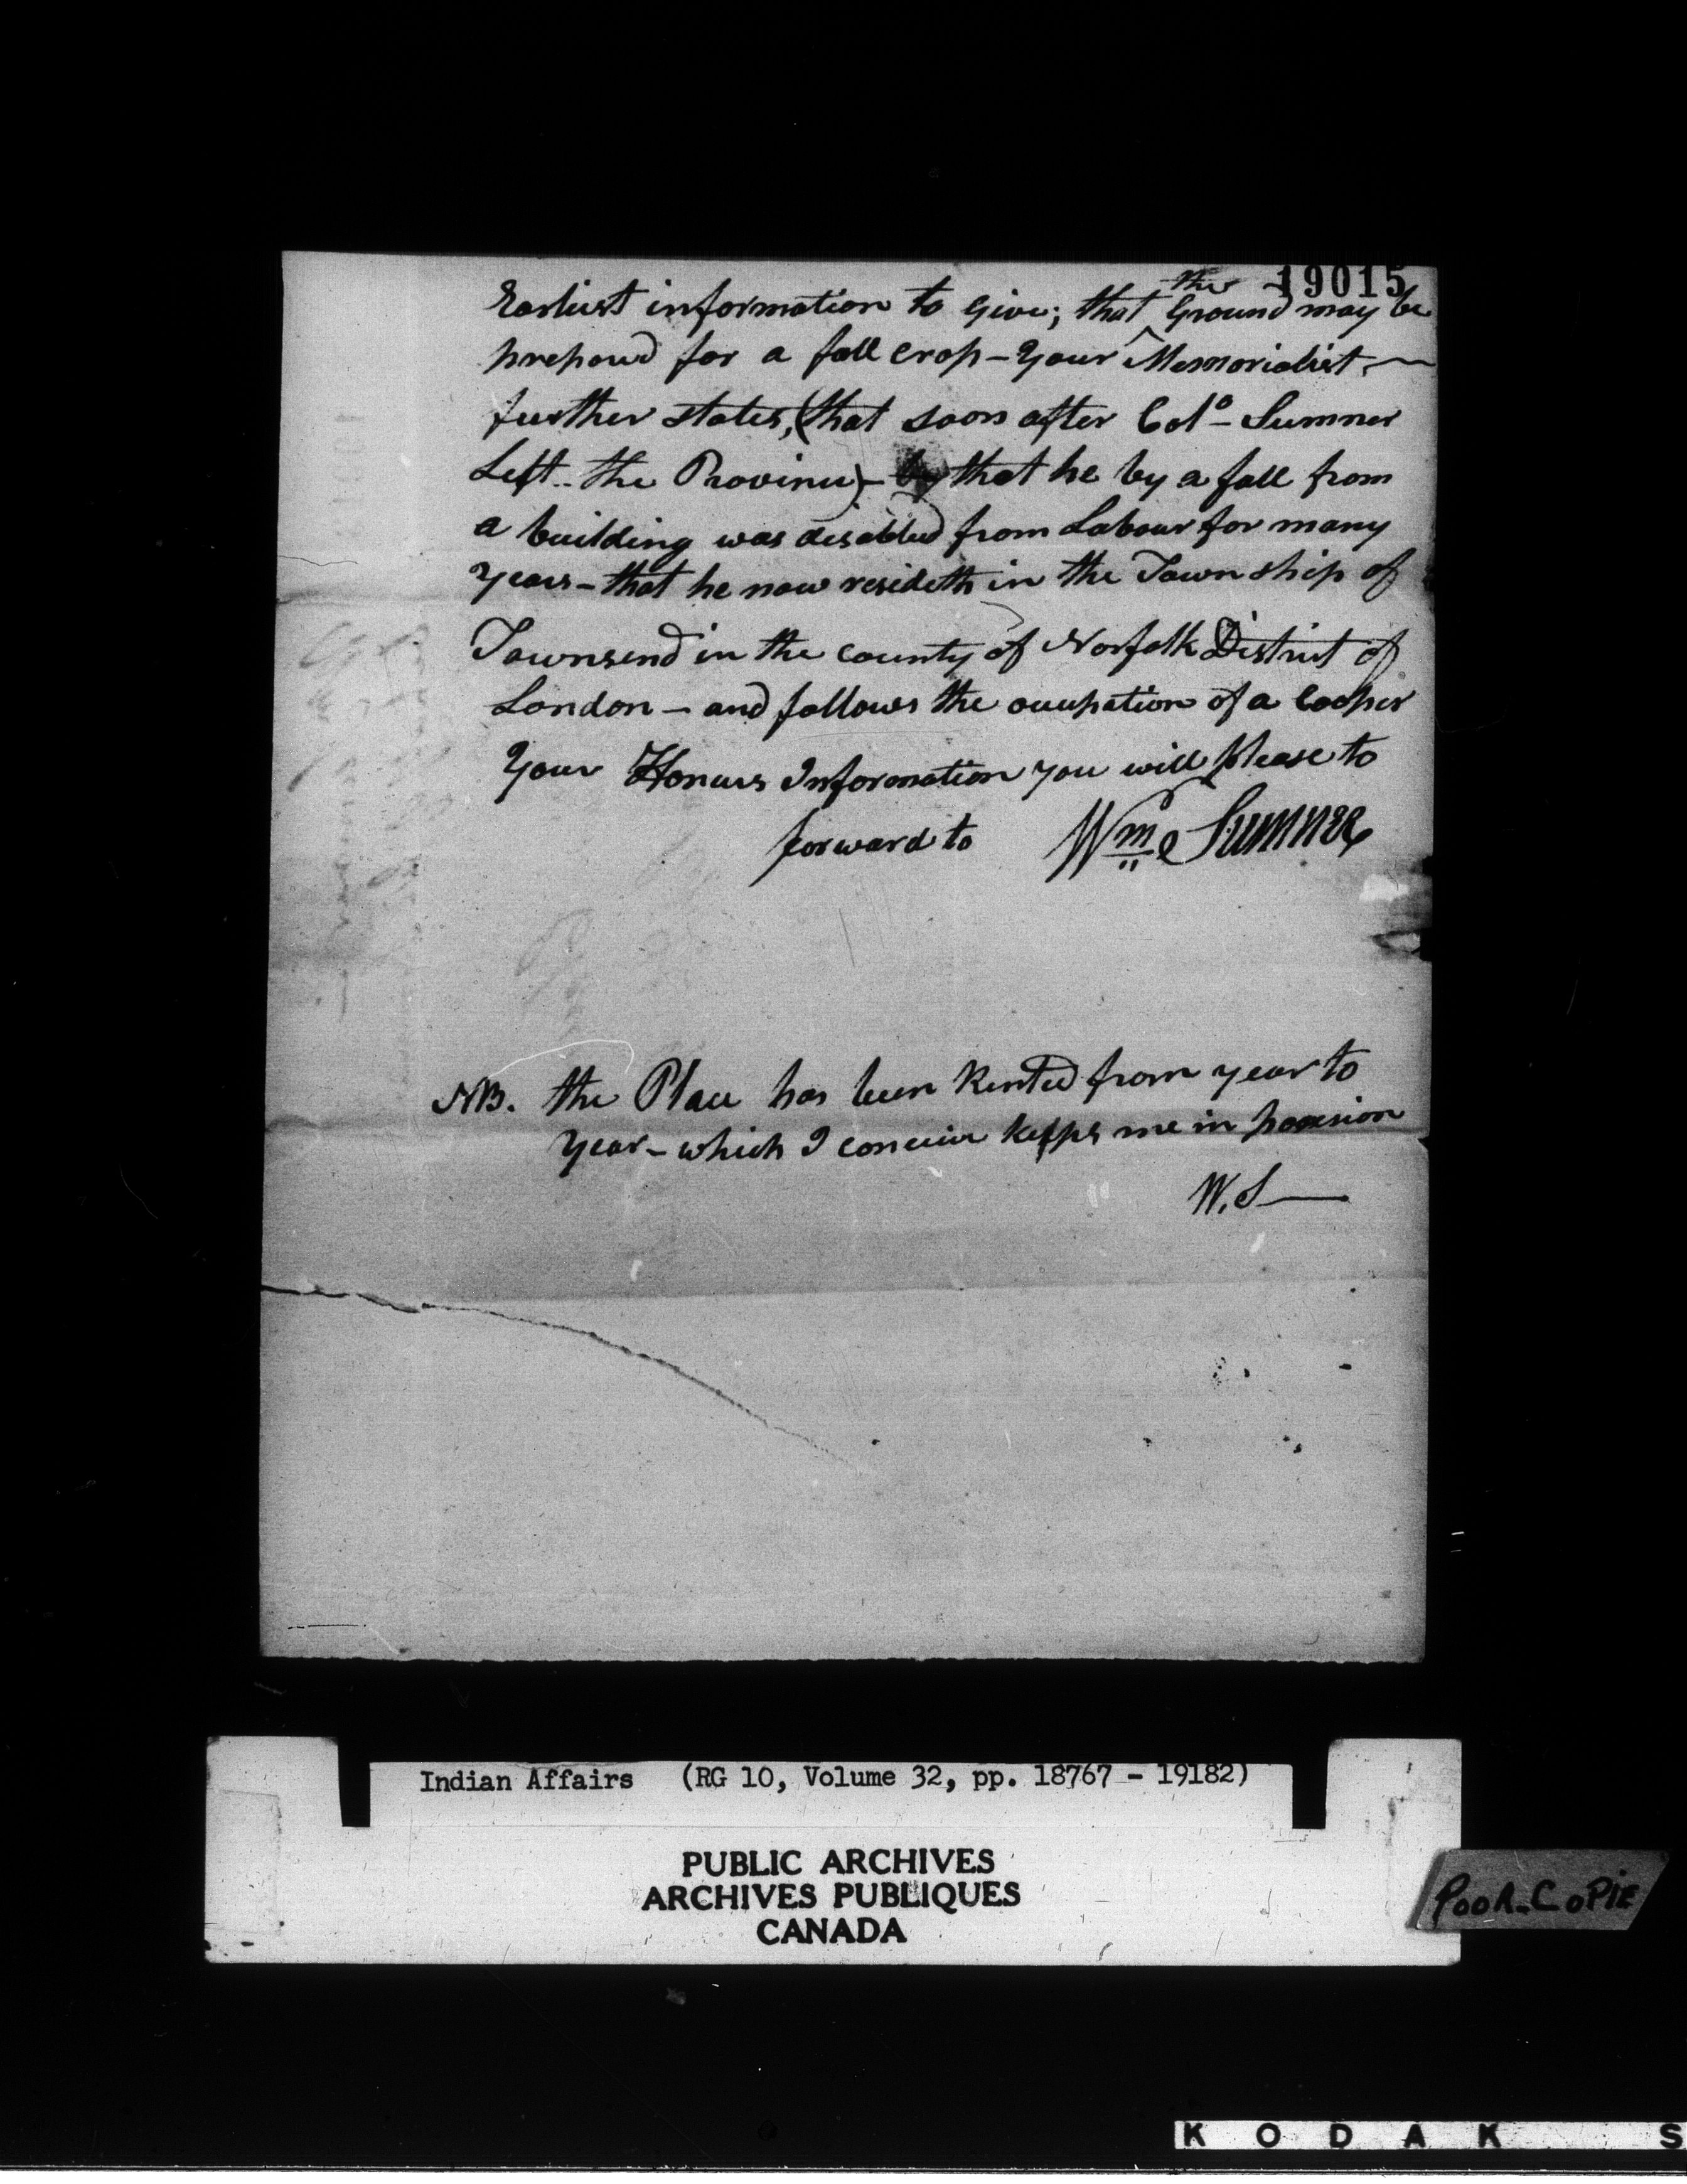 19015
Earliest information to give; that the Ground may be
prepared for a fall crop - Your Memorialist
further states, (that soon after Colo - Sumner
Left - the Province) - by that he by a fall from
a building was disabled from Labour for many
Years - that he now resideth in the Township of
Townsend in the county of Norfolk District of
London - and follows the occupation of a Cooper
Your Honurs Information you will please to
forward to Wm Sumner
NB. the Place has been Rented from year to
Year - which I conceive keeps me in possesion
W. S
Indian Affairs (RG 10, Volume 32, pp. 18767 - 19182)
PUBLIC ARCHIVES
ARCHIVES PUBLIQUES
CANADA
POOR-COPIE
KODAK S